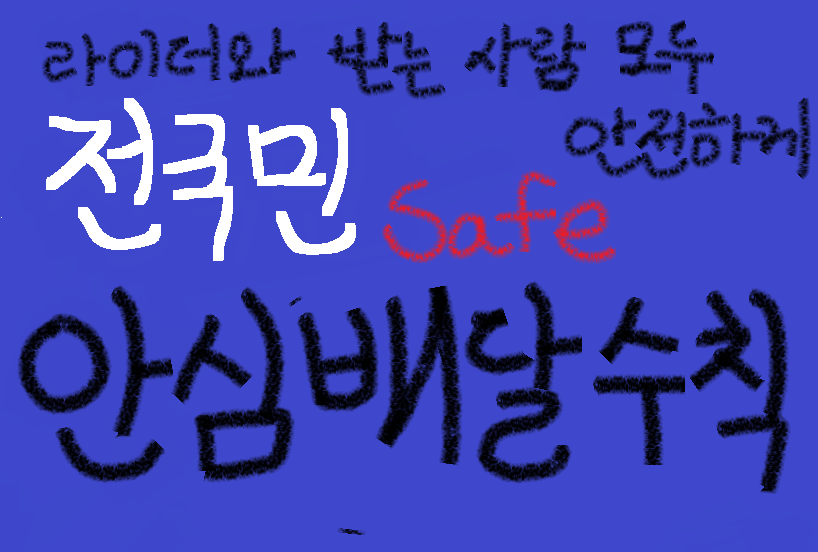 라이더와 받는 사람 모두
안전하게
전국민 Safe
안심배달수칙